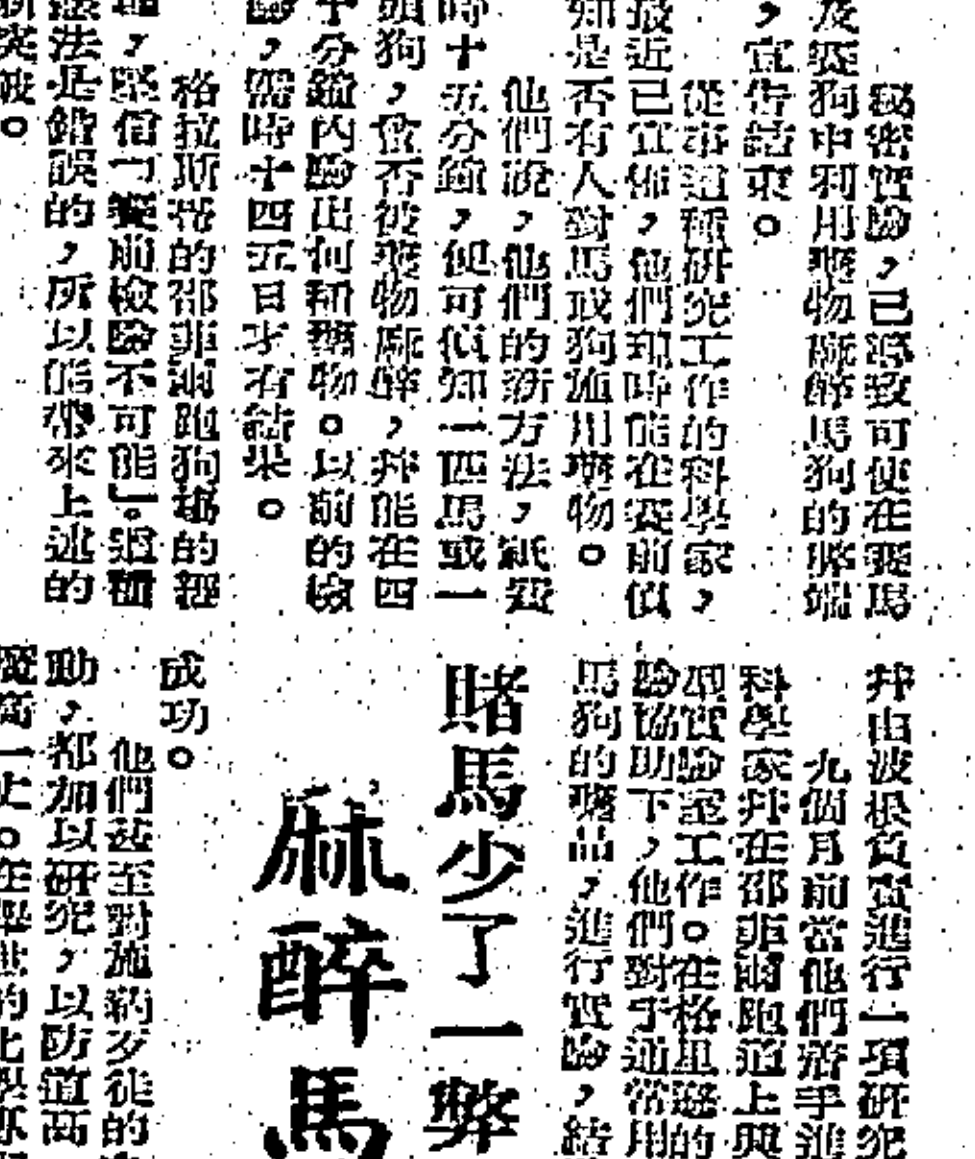 秘密實驗，已導致可使在賽馬
及賽狗中利用藥物麻醉馬狗的弊端
，宣告結束。
從事這種研究工作的科學家，
最近已宣佈，他們現時能在賽前偵
知是否有人對馬或狗施用藥物。
他們說，他們的新方法，祇費
時十五分鐘，便可偵知一匹馬或一
頭狗，曾否被藥物麻醉，幷能在四
十分鐘內驗出何種藥物。以前的檢
驗，需時十四五日才有結果。
格拉斯哥的邵非爾跑狗場的經
，堅信「賽前檢驗不可能」。這種
法是錯誤的，所以能帶來上述的
新突破。
幷由波根負責進行一項研究
九個月前當他們着手進
科學家幷在邵非爾跑道上與
實驗室工作。在格里
驗協助下，他們對于通常用
馬狗的藥品，進行實驗，結
賭馬少了一弊
麻醉馬
成功。
他們甚至對施葯歹徒的
動，都加以研究，以防道高
魔高一丈。在舉世的